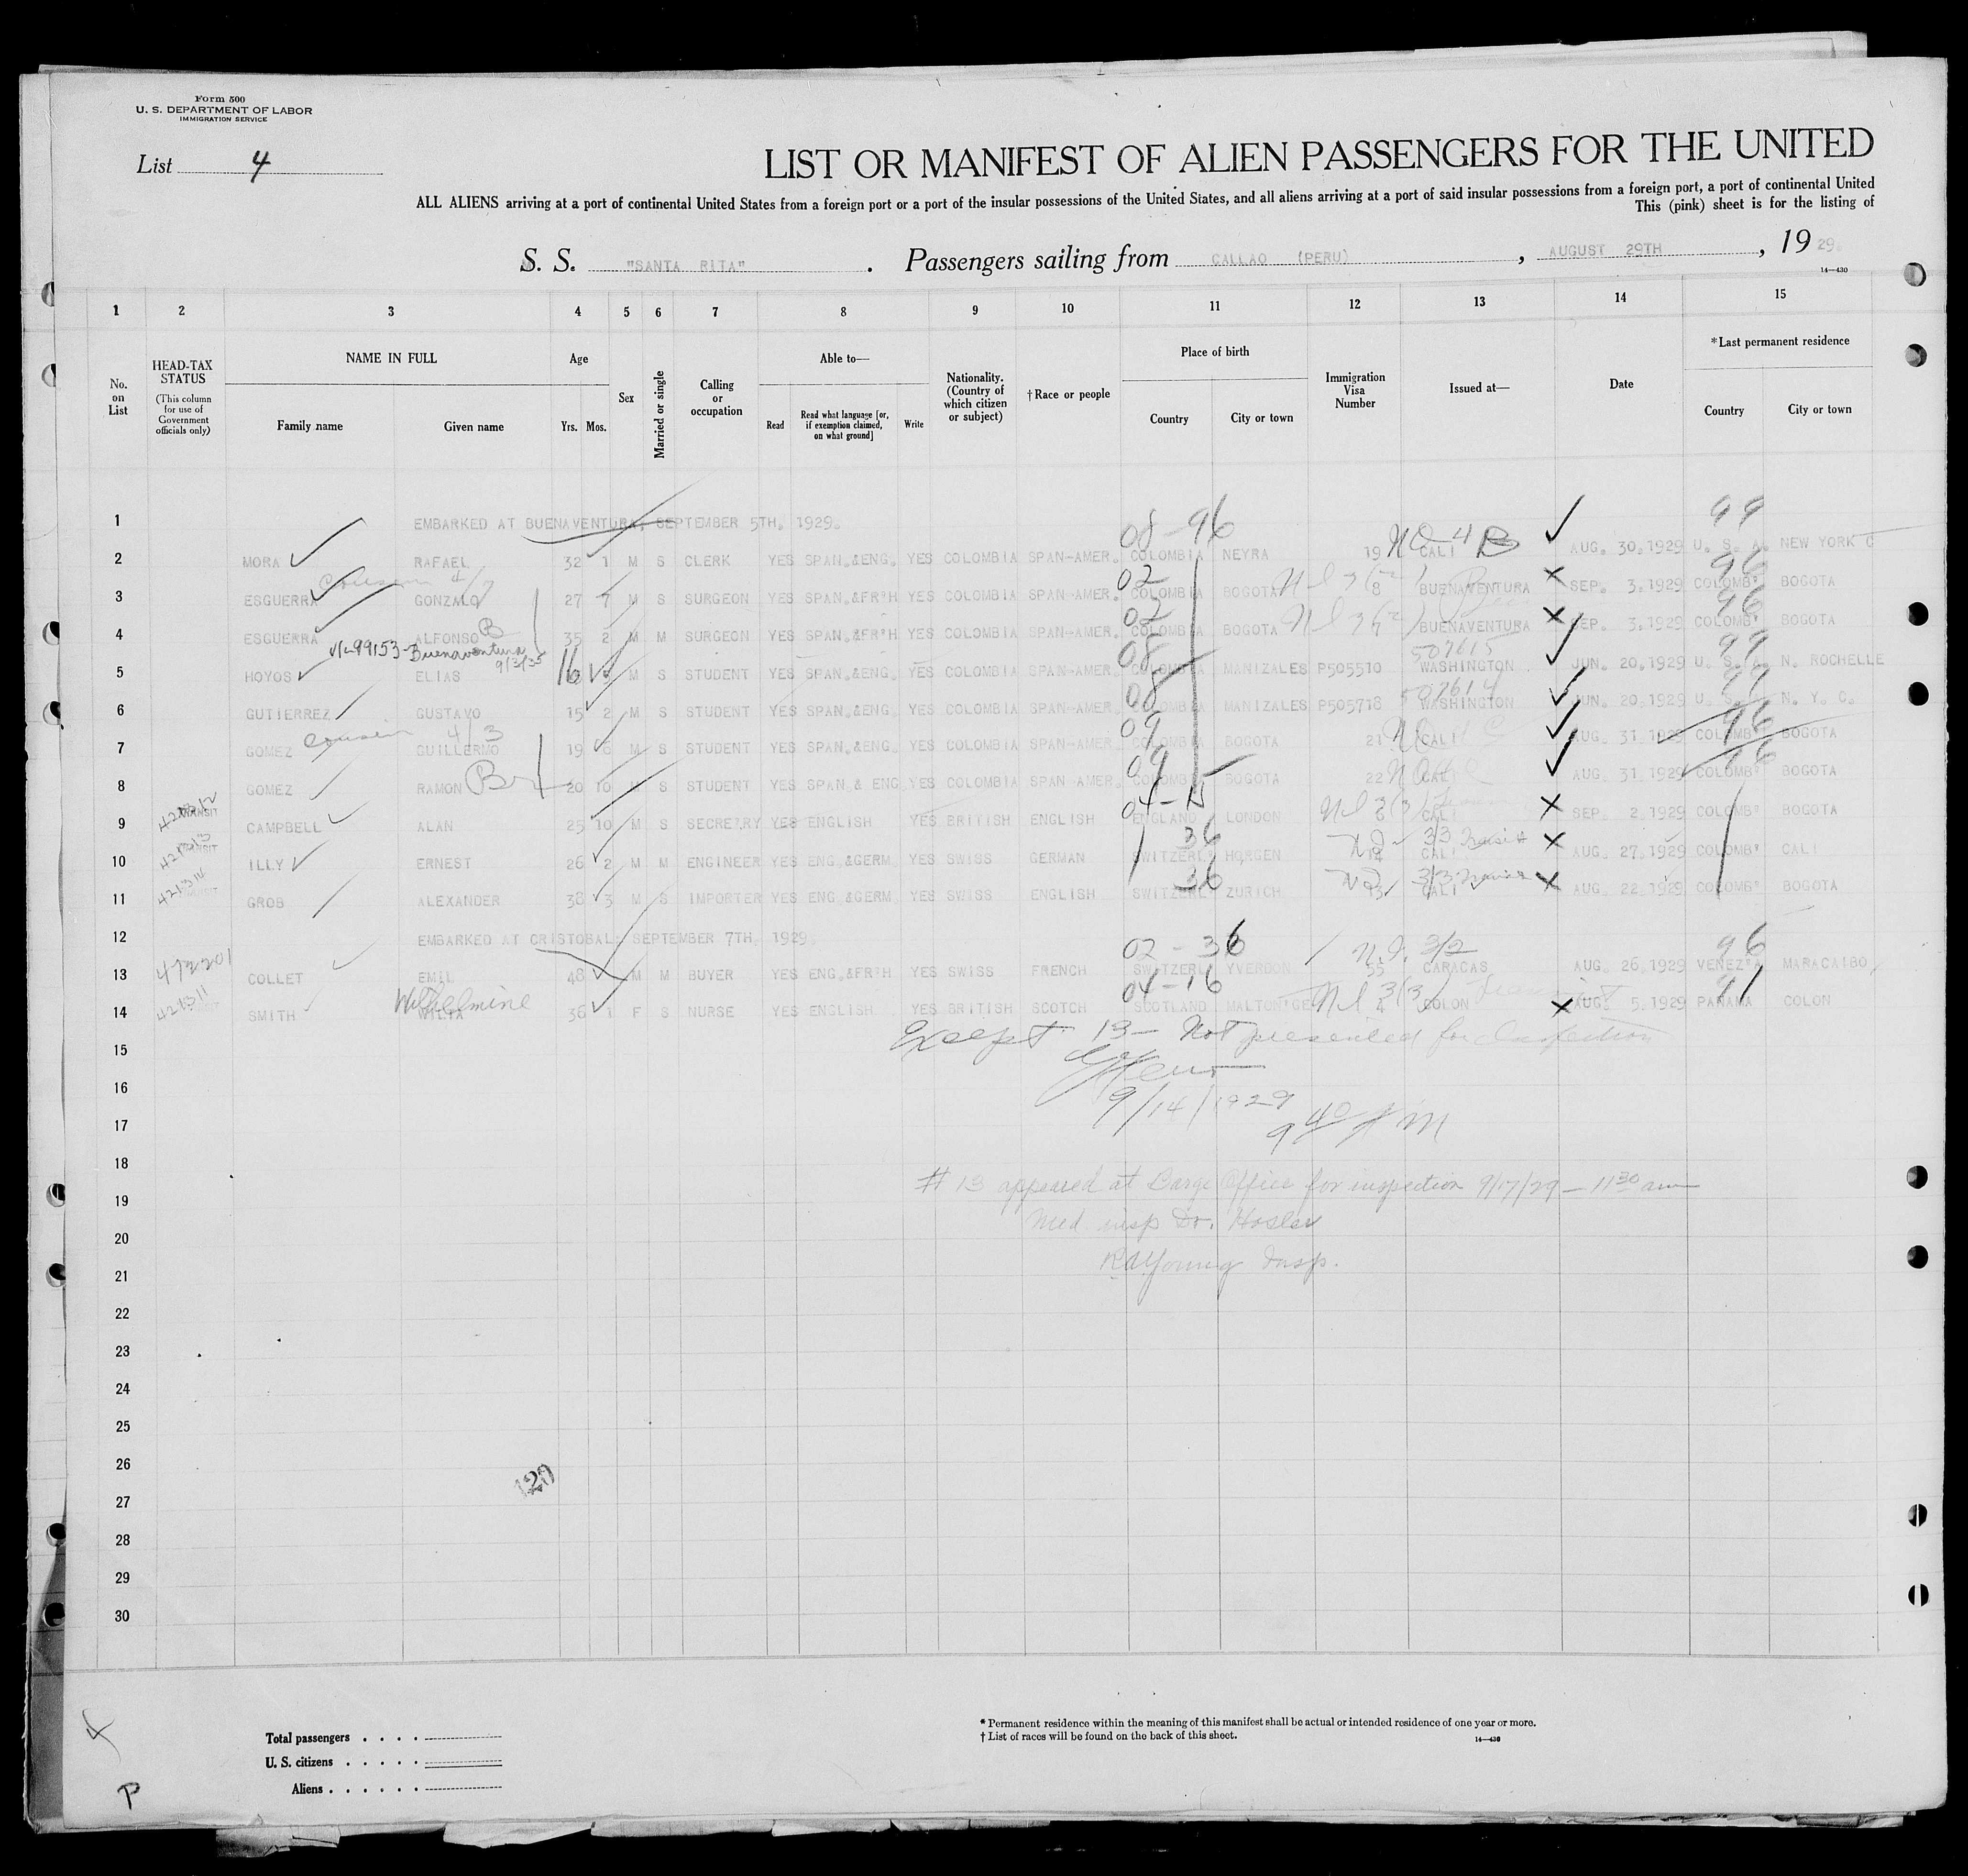 Form 500
U. S. DEPARTMENT OF LABOR
IMMIGRATION SERVICE
List 4
LIST OR MANIFEST OF ALIEN PASSENGERS FOR THE UNITED
ALL ALIENS arriving at a port of continental United States from a foreign port or a port of the insular possessions of the United States, and all aliens arriving at a port of said insular possessions from a foreign port, a port of continental United
This (pink) sheet is for the listing of
S. S. "SANTA RITA" . Passengers sailing from CALLAO (PERU) , AUGUST 29TH , 19 29.
14—430
1 2 3 4 5 6 7 8 9 10 11 12 13 14 15
No. on List
HEAD-TAX STATUS
(This column for use of Government officials only)
NAME IN FULL
Family name Given name
Age
Yrs. Mos.
Sex
Married or single
Calling or occupation
Able to—
Read
Read what language [or, if exemption claimed, on what ground]
Write
Nationality. (Country of which citizen or subject)
†Race or people
Place of birth
Country City or town
Immigration Visa Number
Issued at—
Date
*Last permanent residence
Country City or town
1 EMBARKED AT BUENAVENTURA, SEPTEMBER 5TH. 1929.
08-96 99
2 MORA RAFAEL 32 1 M S CLERK YES SPAN.&ENG. YES COLOMBIA SPAN-AMER. COLOMBIA NEYRA 19 CALI AUG. 30.1929 U. S. A. NEW YORK C
cousin 4/7 02 96
3 ESGUERRA GONZALO 27 7 M S SURGEON YES SPAN.&FR'H YES COLOMBIA SPAN-AMER. COLOMBIA BOGOTA 8 BUENAVENTURA SEP. 3.1929 COLOMB' BOGOTA
02 96
4 ESGUERRA ALFONSO B 35 2 M M SURGEON YES SPAN.&FR'H YES COLOMBIA SPAN-AMER. COLOMBIA BOGOTA 7 BUENAVENTURA SEP. 3.1929 COLOMB' BOGOTA
99153- Buenaventura 9/3/35 08 507615 99
5 HOYOS ELIAS 16 M S STUDENT YES SPAN.&ENG. YES COLOMBIA SPAN-AMER. COLOMBIA MANIZALES P505510 WASHINGTON JUN. 20.1929 U. S. A. N. ROCHELLE
08 507614 99
6 GUTIERREZ GUSTAVO 15 2 M S STUDENT YES SPAN.&ENG. YES COLOMBIA SPAN-AMER. COLOMBIA MANIZALES P505718 WASHINGTON JUN. 20.1929 U. S. A. N. Y. C.
cousin 4/3 09 96
7 GOMEZ GUILLERMO 19 6 M S STUDENT YES SPAN.&ENG. YES COLOMBIA SPAN-AMER. COLOMBIA BOGOTA 21 CALI AUG. 31.1929 COLOMB' BOGOTA
09 96
8 GOMEZ RAMON 20 10 M S STUDENT YES SPAN.& ENG YES COLOMBIA SPAN AMER. COLOMBIA BOGOTA 22 CALI AUG. 31.1929 COLOMB' BOGOTA
04-15
9 TRANSIT CAMPBELL ALAN 25 10 M S SECRETRY YES ENGLISH YES BRITISH ENGLISH ENGLAND LONDON CALI SEP. 2.1929 COLOMB' BOGOTA
36 3/3 Transit
10 TRANSIT ILLY ERNEST 26 2 M M ENGINEER YES ENG.&GERM. YES SWISS GERMAN SWITZERL' HORGEN CALI AUG. 27.1929 COLOMB' CALI
421314 36 3/3 Transit
11 TRANSIT GROB ALEXANDER 38 3 M S IMPORTER YES ENG.&GERM. YES SWISS ENGLISH SWITZERL' ZURICH CALI AUG. 22.1929 COLOMB' BOGOTA
12 EMBARKED AT CRISTOBAL, SEPTEMBER 7TH. 1929.
472201 02 - 36 3/2 96
13 COLLET EMIL 48 M M BUYER YES ENG.&FR'H YES SWISS FRENCH SWITZERL' YVERDON 55 CARACAS AUG. 26.1929 VENEZ'A MARACAIBO
421311 Wilhelmine 04-16 3/3 91
14 SMITH 36 1 F S NURSE YES ENGLISH YES BRITISH SCOTCH SCOTLAND 4 COLON AUG. 5.1929 PANAMA COLON
Except 13 - Not presented for Inspection
15
16
9/14/1929
17 9 40 AM
18
# 13 appeared at Barge Office for inspection 9/17/29 — 11 30 am
19
Med insp Dr. Hosler
20
R A Young Insp.
21
22
23
24
25
26
120
27
28
29
30
* Permanent residence within the meaning of this manifest shall be actual or intended residence of one year or more.
† List of races will be found on the back of this sheet.
14—430
Total passengers . . . .
U. S. citizens . . . . .
Aliens . . . . . .
P